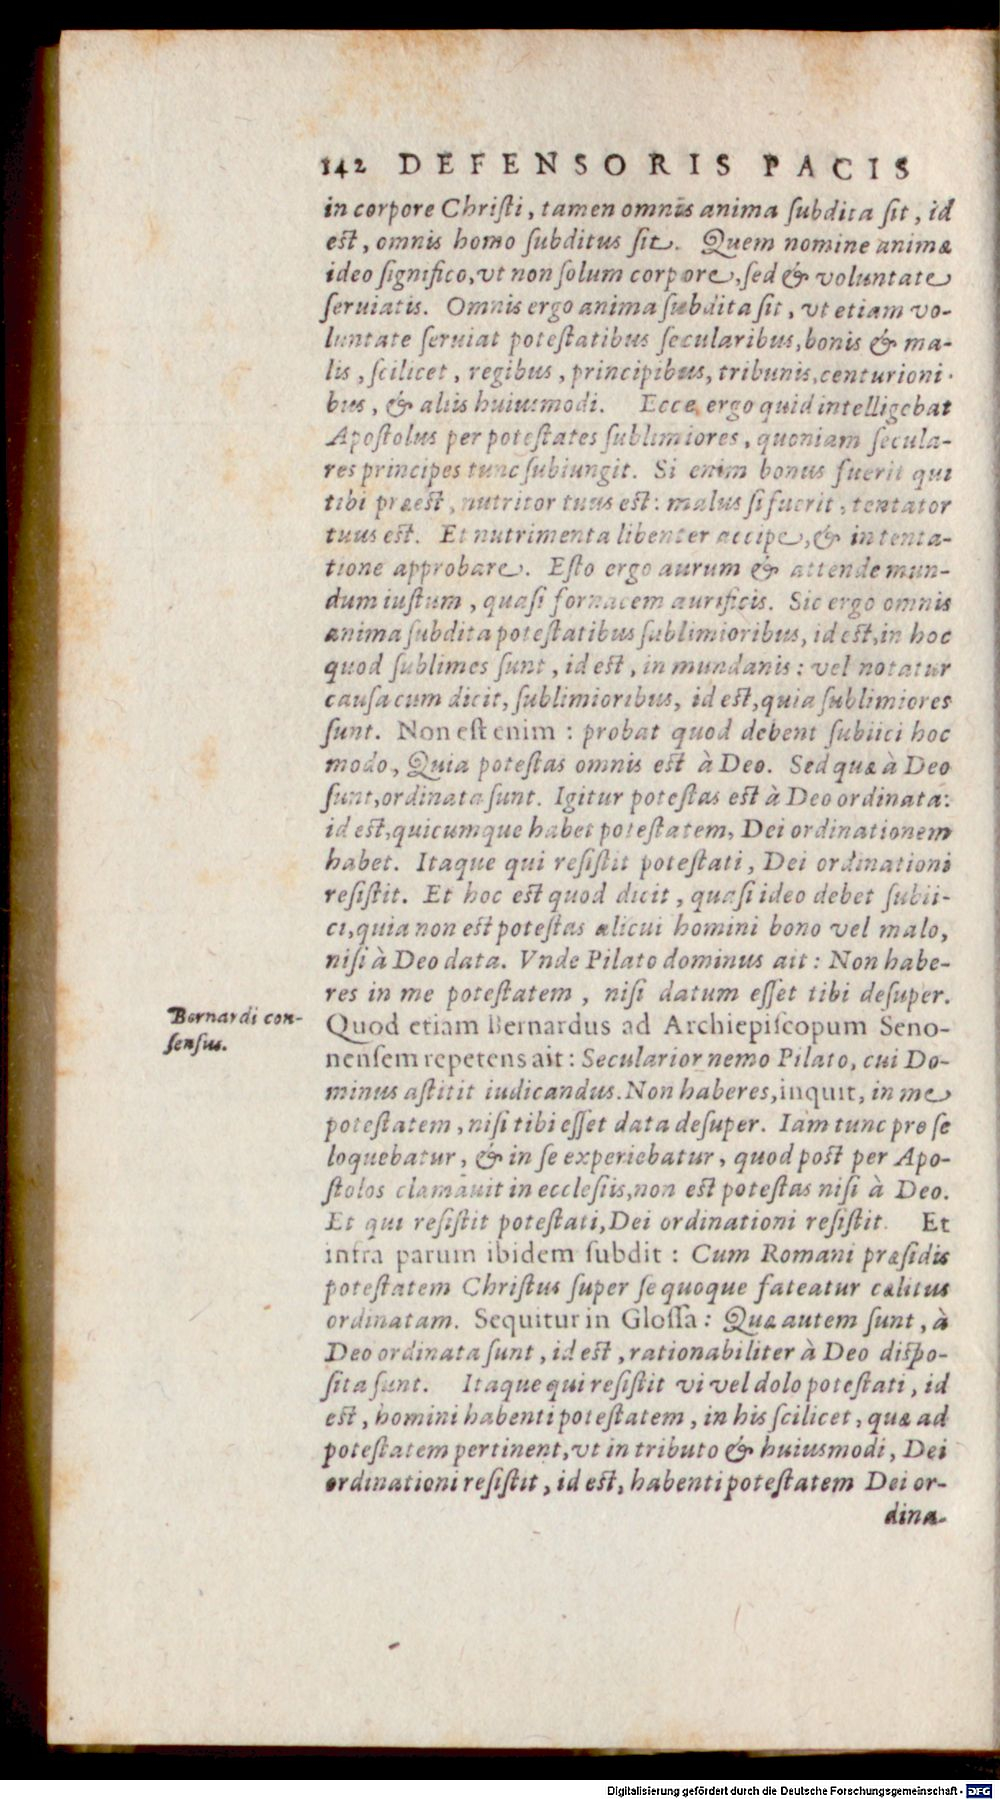 142 DEFENSORIS PACIS
in corpore Christi, tamen omnis anima subdita sit, id
est, omnis homo subditus sit. Quem nomine animæ
ideo significo, vt non solum corpore, sed & voluntate
seruiatis. Omnis ergo anima subdita sit, vt etiam vo-
luntate seruiat potestatibus secularibus, bonis & ma-
lis, scilicet, regibus, principibus, tribunis, centurioni-
bus, & aliis huiusmodi. Ecce ergo quid intelligebat
Apostolus per potestates sublimiores, quoniam secula-
res principes tunc subiungit. Si enim bonus fuerit qui
tibi præest, nutritor tuus est: malus si fuerit, tentator
tuus est. Et nutrimenta libenter accipe, & in tenta-
tione approbare. Esto ergo aurum & attende mun-
dum iustum, quasi fornacem aurificis. Sic ergo omnis
anima subdita potestatibus sublimioribus, id est, in hoc
quod sublimes sunt, id est, in mundanis: vel notatur
causa cum dicit, sublimioribus, id est, quia sublimiores
sunt. Non est enim: probat quod debent subiici hoc
modo, Quia potestas omnis est à Deo. Sed quæ à Deo
sunt, ordinata sunt. Igitur potestas est à Deo ordinata:
id est, quicumque habet potestatem, Dei ordinationem
habet. Itaque qui resistit potestati, Dei ordinationi
resistit. Et hoc est quod dicit, quasi ideo debet subii-
ci, quia non est potestas alicui homini bono vel malo,
nisi à Deo data. Vnde Pilato dominus ait: Non habe-
res in me potestatem, nisi datum esset tibi desuper.
Bernardi con-
sensus.
Quod etiam Bernardus ad Archiepiscopum Seno-
nensem repetens ait: Secularior nemo Pilato, cui Do-
minus astitit iudicandus. Non haberes, inquit, in me
potestatem, nisi tibi esset data desuper. Iam tunc pro se
loquebatur, & in se experiebatur, quod post per Apo-
stolos clamauit in ecclesiis, non est potestas nisi à Deo.
Et qui resistit potestati, Dei ordinationi resistit. Et
infra parum ibidem subdit: Cum Romani præsidis
potestatem Christus super se quoque fateatur cælitus
ordinatam. Sequitur in Glossa: Quæ autem sunt, à
Deo ordinata sunt, id est, rationabiliter à Deo dispo-
sita sunt. Itaque qui resistit vi vel dolo potestati, id
est, homini habenti potestatem, in his scilicet, quæ ad
potestatem pertinent, vt in tributo & huiusmodi, Dei
ordinationi resistit, id est, habenti potestatem Dei or-
dina-
Digitalisierung gefördert durch die Deutsche Forschungsgemeinschaft - DFG